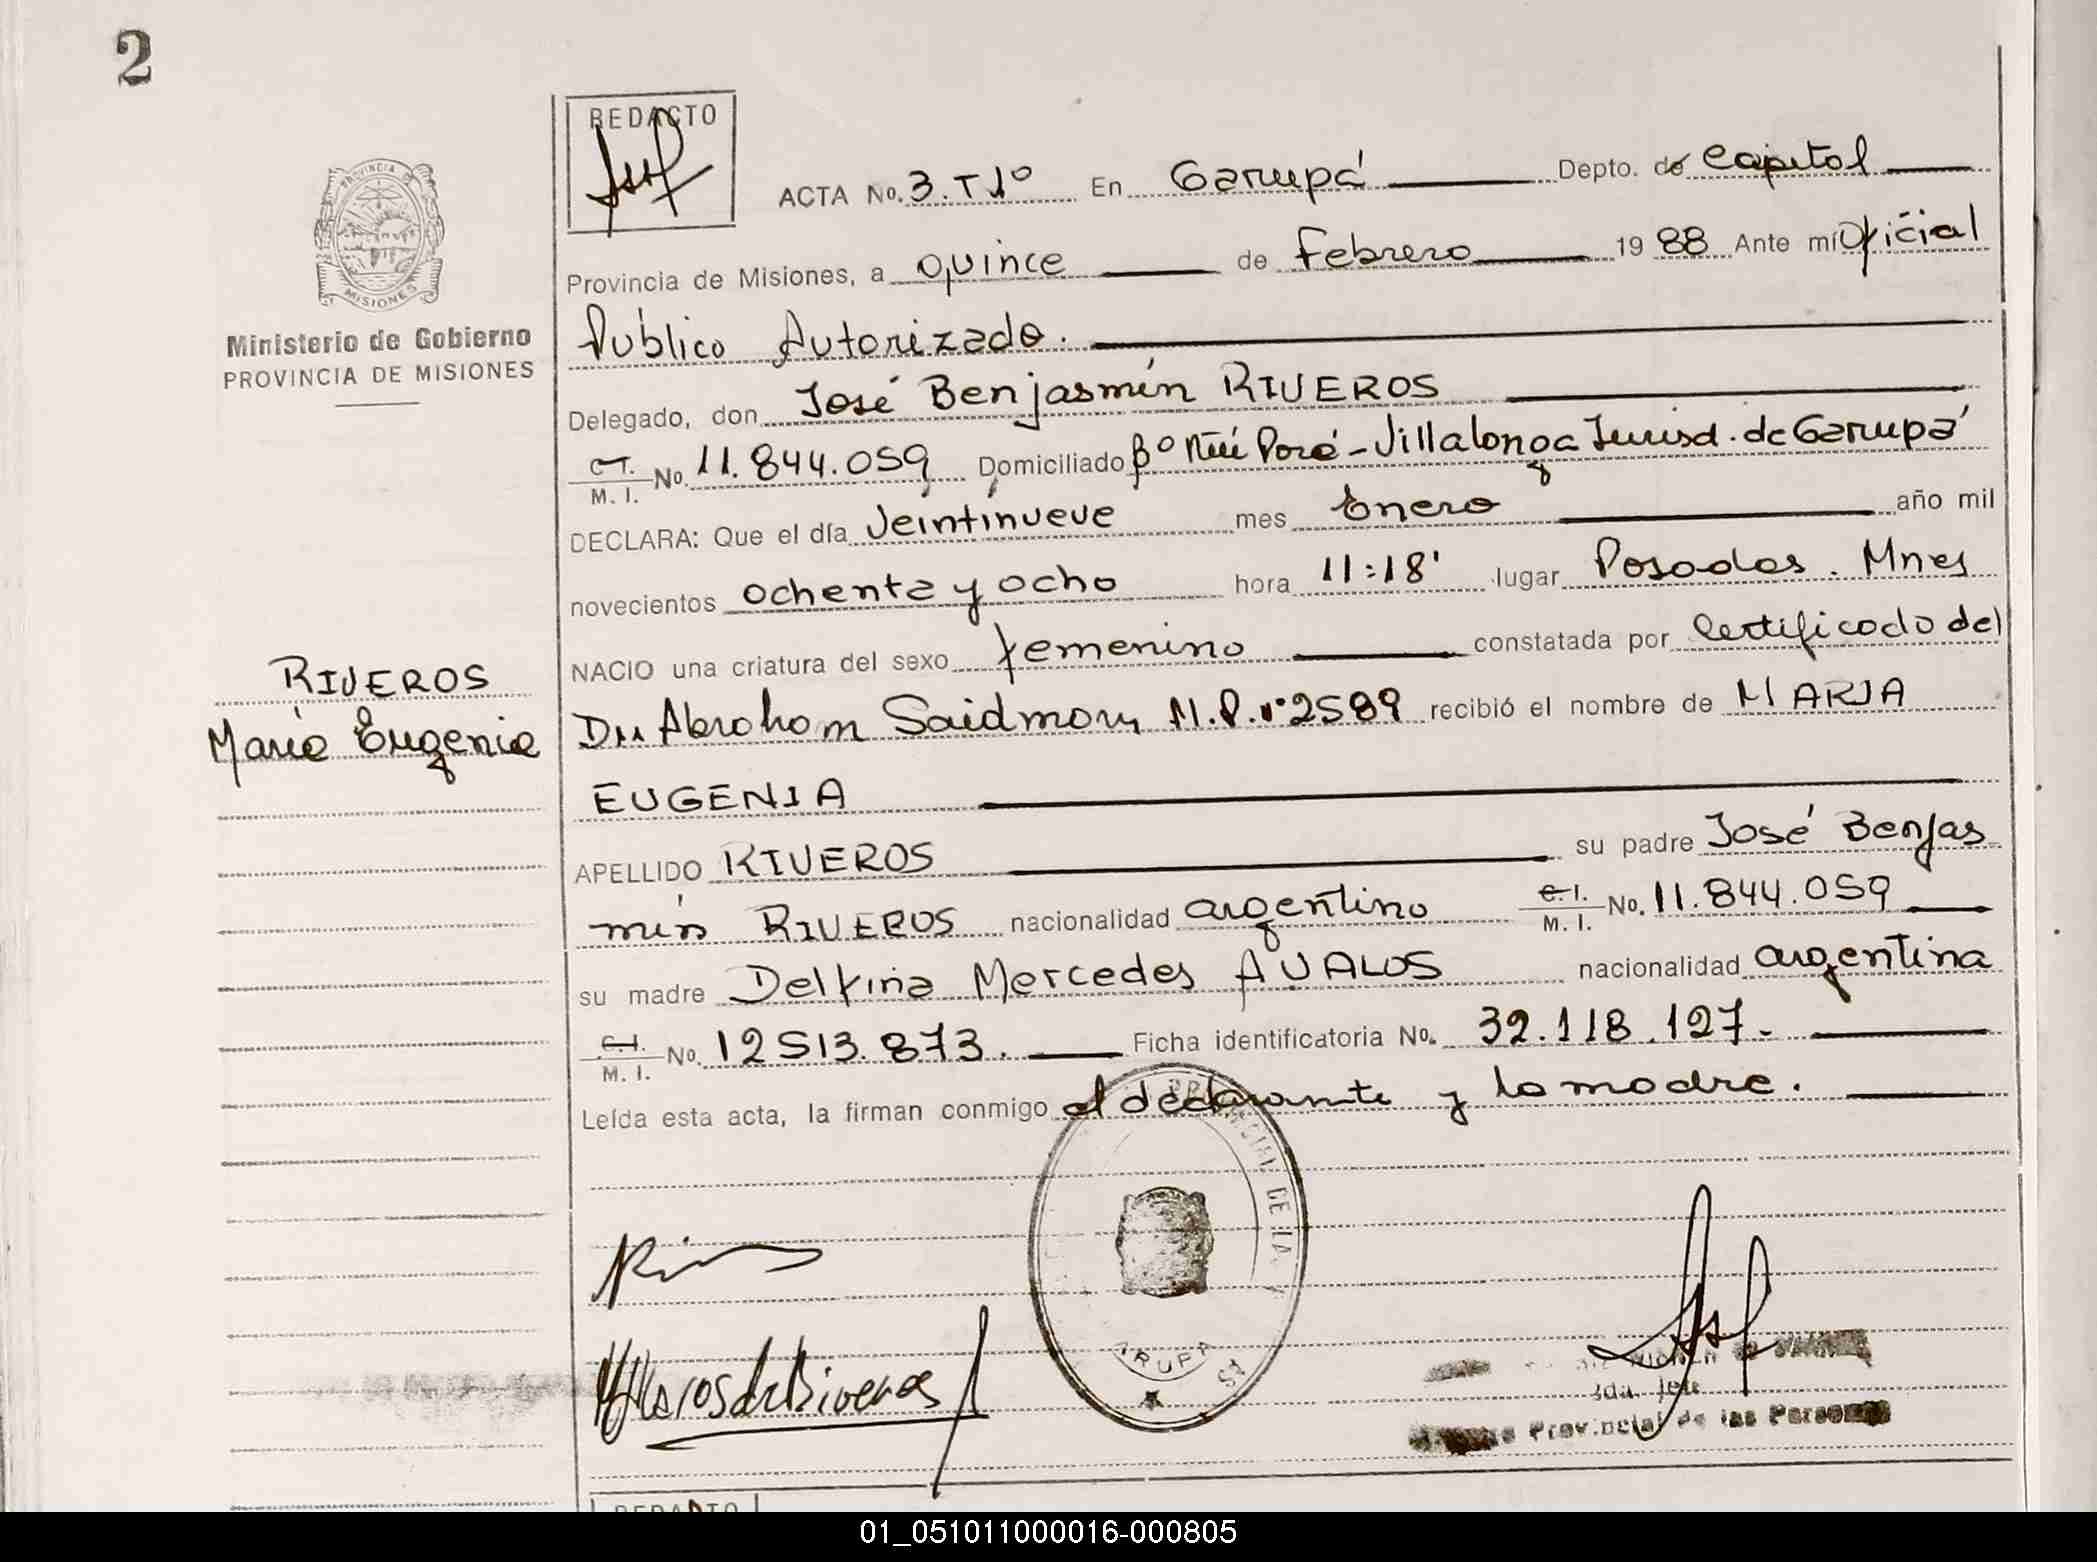 2
REDACTO
ACTA No. 3. T 1º En Garupá Depto. de Capital
Provincia de Misiones, a quince de Febrero 19 88 Ante mí Oficial
Público Autorizado.
Delegado, don José Benjasmín RIVEROS
C.I. M. I. No. 11.844.059 Domiciliado Bº Ñú Porá - Villalonga Jurisd. de Garupá
DECLARA: Que el día Veintinueve mes Enero año mil
novecientos ochenta y ocho hora 11:18' lugar Posadas. Mnes
NACIO una criatura del sexo femenino constatada por Certificado del
Dr. Abraham Saidman, M.P. nº 2589 recibió el nombre de MARIA
EUGENIA
APELLIDO RIVEROS su padre José Benjas
mín RIVEROS nacionalidad argentino C.I. M. I. No. 11.844.059
su madre Delfina Mercedes AVALOS nacionalidad argentina
C.I. M. I. No. 12513.873. Ficha identificatoria No. 32.118.127.-
Leída esta acta, la firman conmigo el declarante y la madre.
PROVINCIA DE
MISIONES
Ministerio de Gobierno
PROVINCIA DE MISIONES
RIVEROS
María Eugenia
DE LA
Provincial de las Personas
REDACTO
01_051011000016-000805